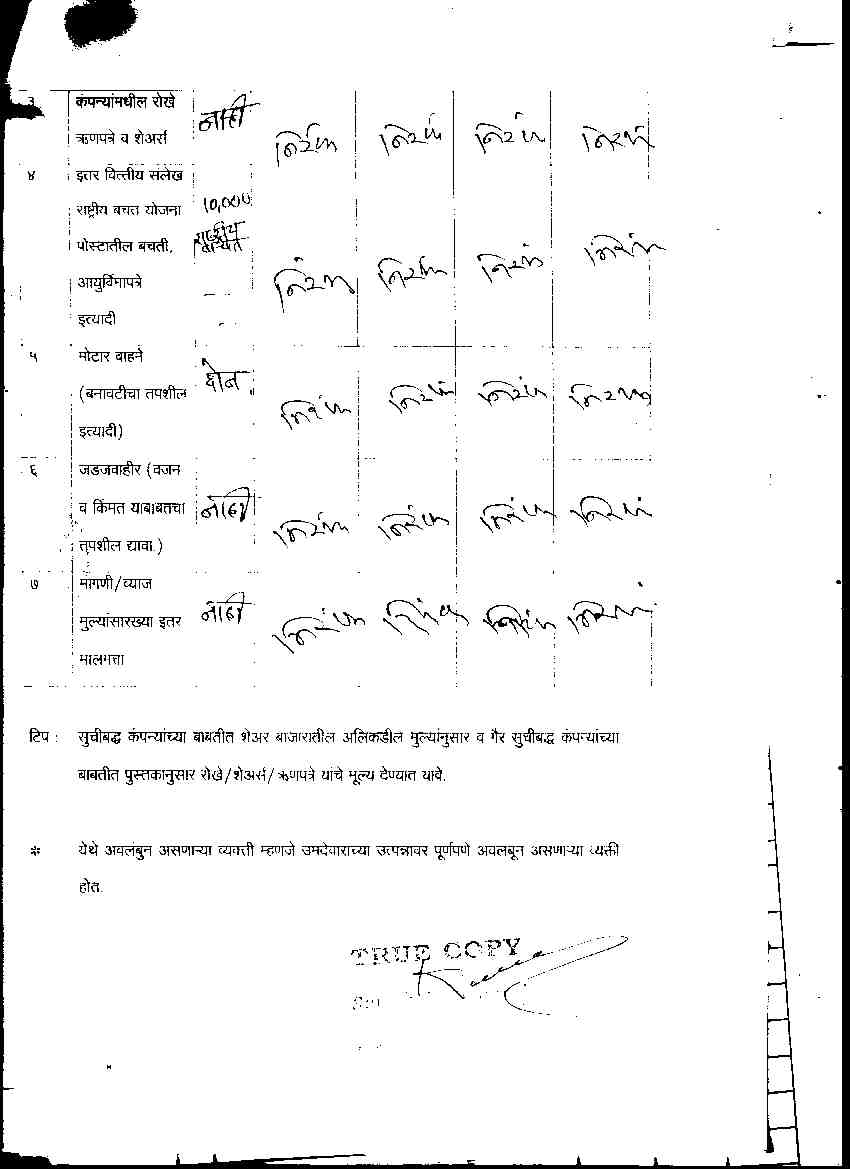 ३ कंपन्यांमधील रोखे नाही
ऋणपत्रे व शेअर्स निरंक निरंक निरंक निरंक
४ इतर वित्तीय संलेख
राष्ट्रीय बचत योजना 10,000
पोस्टातील बचती, राष्ट्रीय
आयुर्विमापत्रे निरंक निरंक निरंक निरंक
इत्यादी
५ मोटार वाहने
(बनावटीचा तपशील दोन निरंक निरंक निरंक निरंक
इत्यादी)
६ जडजवाहीर (वजन
व किंमत याबाबतचा नाही निरंक निरंक निरंक निरंक
तपशील द्यावा.)
७ मागणी/व्याज
मुल्यांसारख्या इतर नाही निरंक निरंक निरंक निरंक
मालमत्ता
टिप : सुचीबद्ध कंपन्यांच्या बाबतीत शेअर बाजारातील अलिकडील मुल्यांनुसार व गैर सुचीबद्ध कंपन्यांच्या
बाबतीत पुस्तकानुसार रोखे/शेअर्स/ऋणपत्रे यांचे मूल्य देण्यात यावे.
* येथे अवलंबुन असणाऱ्या व्यक्ती म्हणजे उमदेवाराच्या उत्पन्नावर पूर्णपणे अवलबून असणाऱ्या व्यक्ती
होत.
TRUE COPY